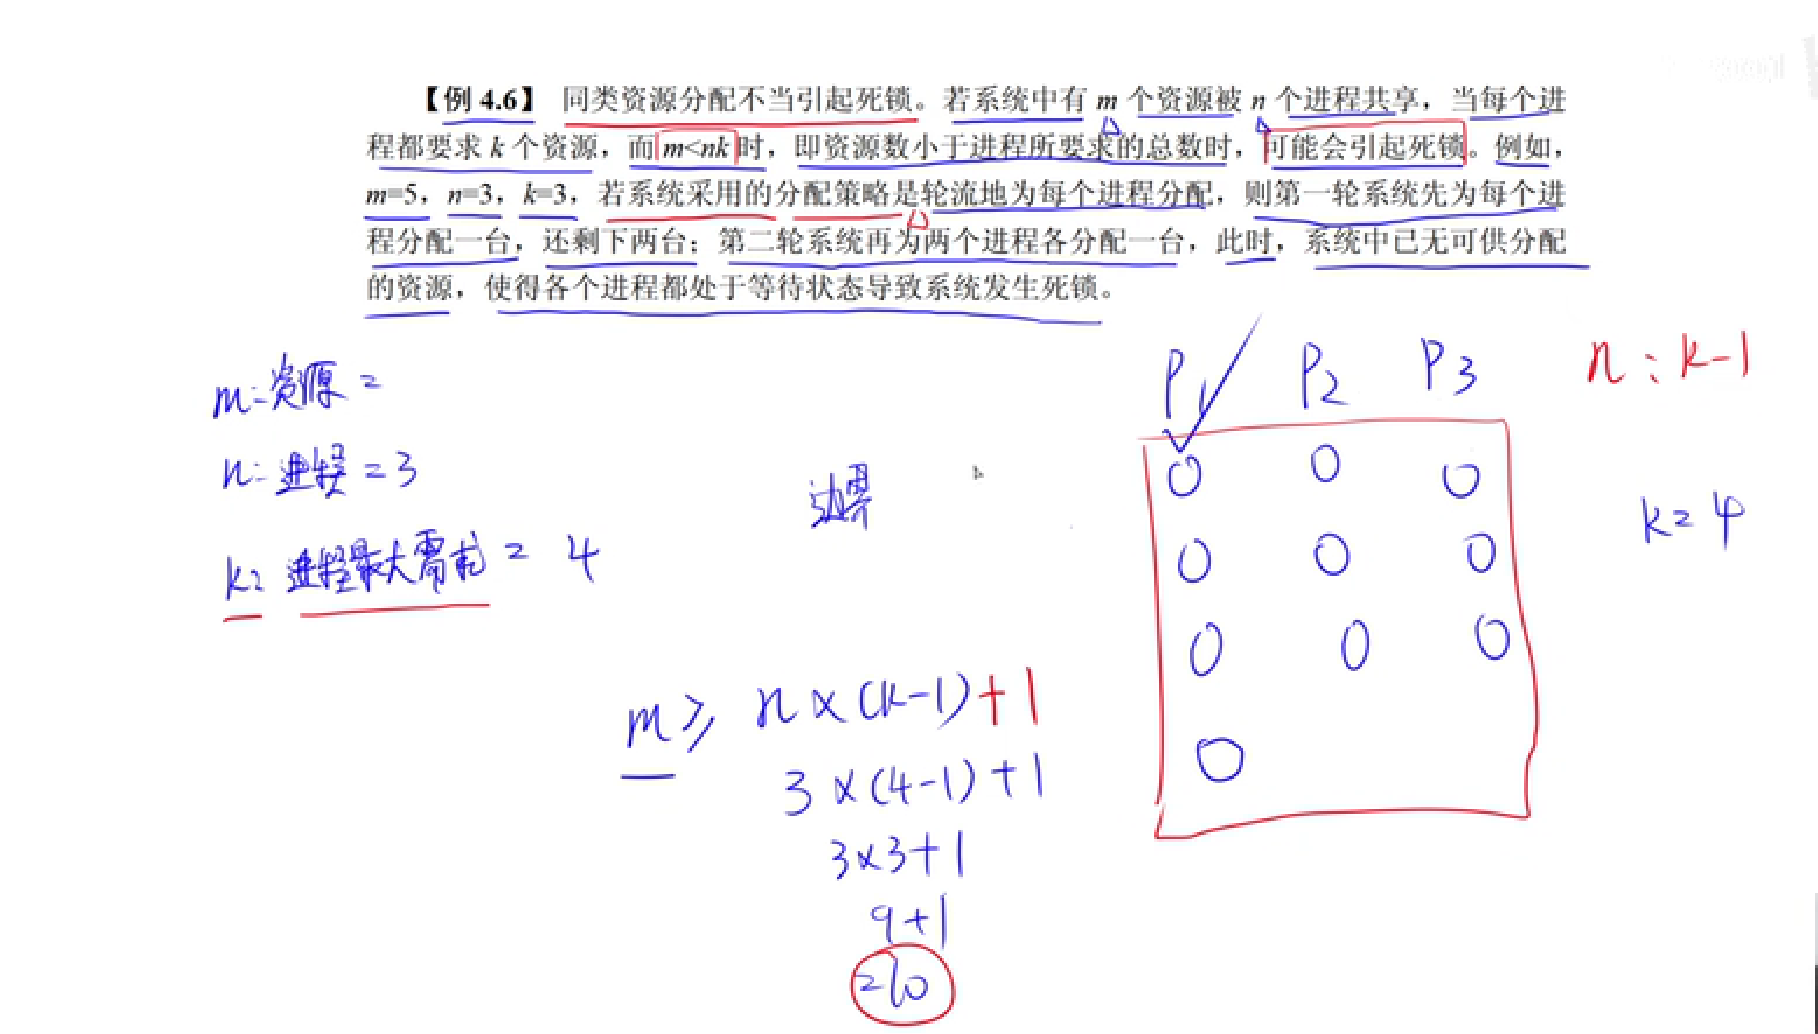 【例 4.6】 同类资源分配不当引起死锁。若系统中有 m 个资源被 n 个进程共享，当每个进
程都要求 k 个资源，而 m<nk 时，即资源数小于进程所要求的总数时，可能会引起死锁。例如，
m=5，n=3，k=3，若系统采用的分配策略是轮流地为每个进程分配，则第一轮系统先为每个进
程分配一台，还剩下两台；第二轮系统再为两个进程各分配一台，此时，系统中已无可供分配
的资源，使得各个进程都处于等待状态导致系统发生死锁。
m:资源=
n:进程=3
k:进程最大需求=4
边界
P1 P2 P3
n:k-1
k=4
m≥ n×(k-1)+1
3×(4-1)+1
3×3+1
9+1
=10